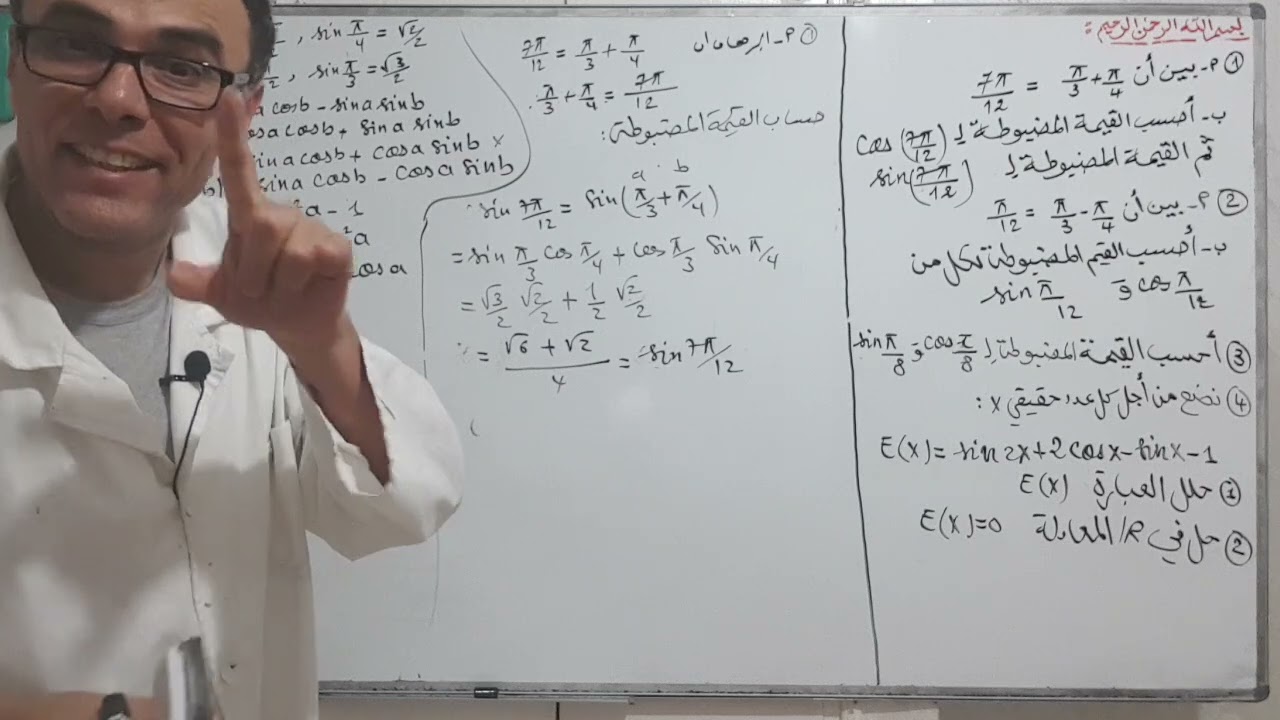 بسم الله الرحمن الرحيم :
① P- بين أن π/3 + π/4 = 7π/12
ب- أحسب القيمة المضبوطة لـ cos(7π/12)
ثم القيمة المضبوطة لـ sin(7π/12)
② P- بين أن π/3 - π/4 = π/12
ب- أحسب القيم المضبوطة لكل من
cos π/12 و sin π/12
③ أحسب القيمة المضبوطة لـ cos π/8 و sin π/8
④ نضع من أجل كل عدد حقيقي x :
E(x) = sin 2x + 2 cos x - sin x - 1
① حلل العبارة E(x)
② حل في IR المعادلة E(x)=0
① P- البرهان أن 7π/12 = π/3 + π/4
π/3 + π/4 = 7π/12
حساب القيمة المضبوطة :
a b
sin 7π/12 = sin(π/3 + π/4)
= sin π/3 cos π/4 + cos π/3 sin π/4
= √3/2 √2/2 + 1/2 √2/2
= (√6 + √2)/4 = sin 7π/12
, sin π/4 = √2/2
, sin π/3 = √3/2
a cosb - sina sinb
cosa cosb + sina sinb
sina cosb + cosa sinb ×
sina cosb - cosa sinb
²a - 1
²a
cos a